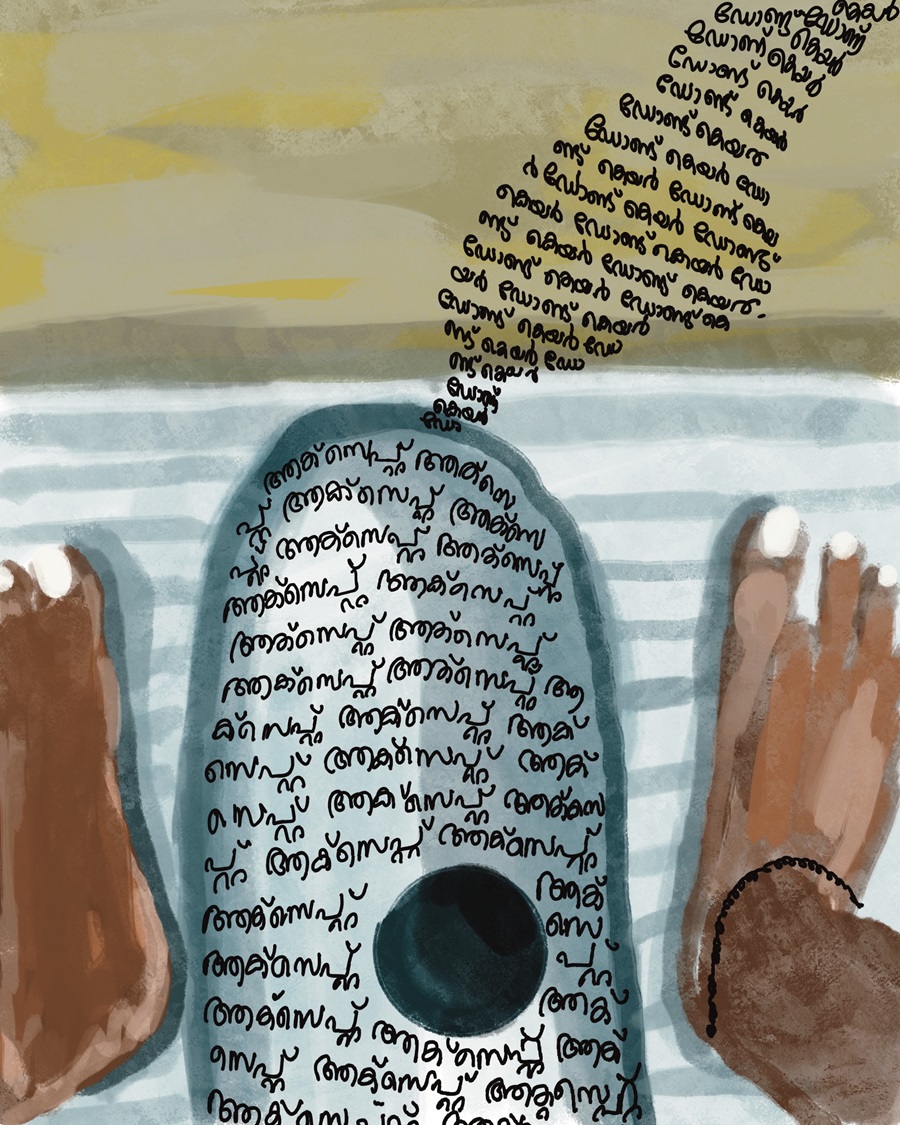 കെയർ
ഡോണ്ട് ഡോണ്ട്
ഡോണ്ട് കെയർ
ഡോണ്ട് കെയർ
ഡോണ്ട് കെയർ
ഡോണ്ട് കെയർ
ഡോണ്ട് കെയർ ഡോ
ണ്ട് കെയർ ഡോണ്ട് കെ
ർ ഡോണ്ട് കെയർ ഡോണ്ട്
കെയർ ഡോണ്ട് കെയർ ഡോ
ണ്ട് കെയർ ഡോണ്ട് കെയർ
ഡോണ്ട് കെയർ ഡോണ്ട് കെ
യർ ഡോണ്ട് കെയർ
ഡോണ്ട് കെയർ ഡോ
ണ്ട് കെയർ ഡോ
ണ്ട് കെയർ
ഡോണ്ട്
കെയർ
ഡോ
ആക്സെപ്റ്റ് ആക്സെ
പ്റ്റ് ആക്സെപ്റ്റ് ആക്സെ
പ്റ്റ് ആക്സെപ്റ്റ് ആക്സെപ്റ്റ്
ആക്സെപ്റ്റ് ആക്സെപ്റ്റ്
ആക്സെപ്റ്റ് ആക്സെപ്റ്റ്
ആക്സെപ്റ്റ് ആക്സെപ്റ്റ് ആ
ക്സെപ്റ്റ് ആക്സെപ്റ്റ് ആക്
സെപ്റ്റ് ആക്സെപ്റ്റ് ആക്
സെപ്റ്റ് ആക്സെപ്റ്റ് ആക്സെ
പ്റ്റ് ആക്സെപ്റ്റ് ആക്സെപ്റ്റ്
ആക്സെപ്റ്റ് ആക്
സെ
ആക്സെപ്റ്റ് പ്റ്റ്
ആക്സെപ്റ്റ് ആക്സെപ്റ്റ് ആക്
സെപ്റ്റ് ആക്സെപ്റ്റ് ആക്
ആക്സെപ്റ്റ് ആക്സെപ്റ്റ്